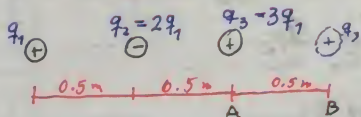 q₁ q₂=2q₁ q₃=3q₁ q₃
+ − + +
0.5m 0.5m 0.5m
A B